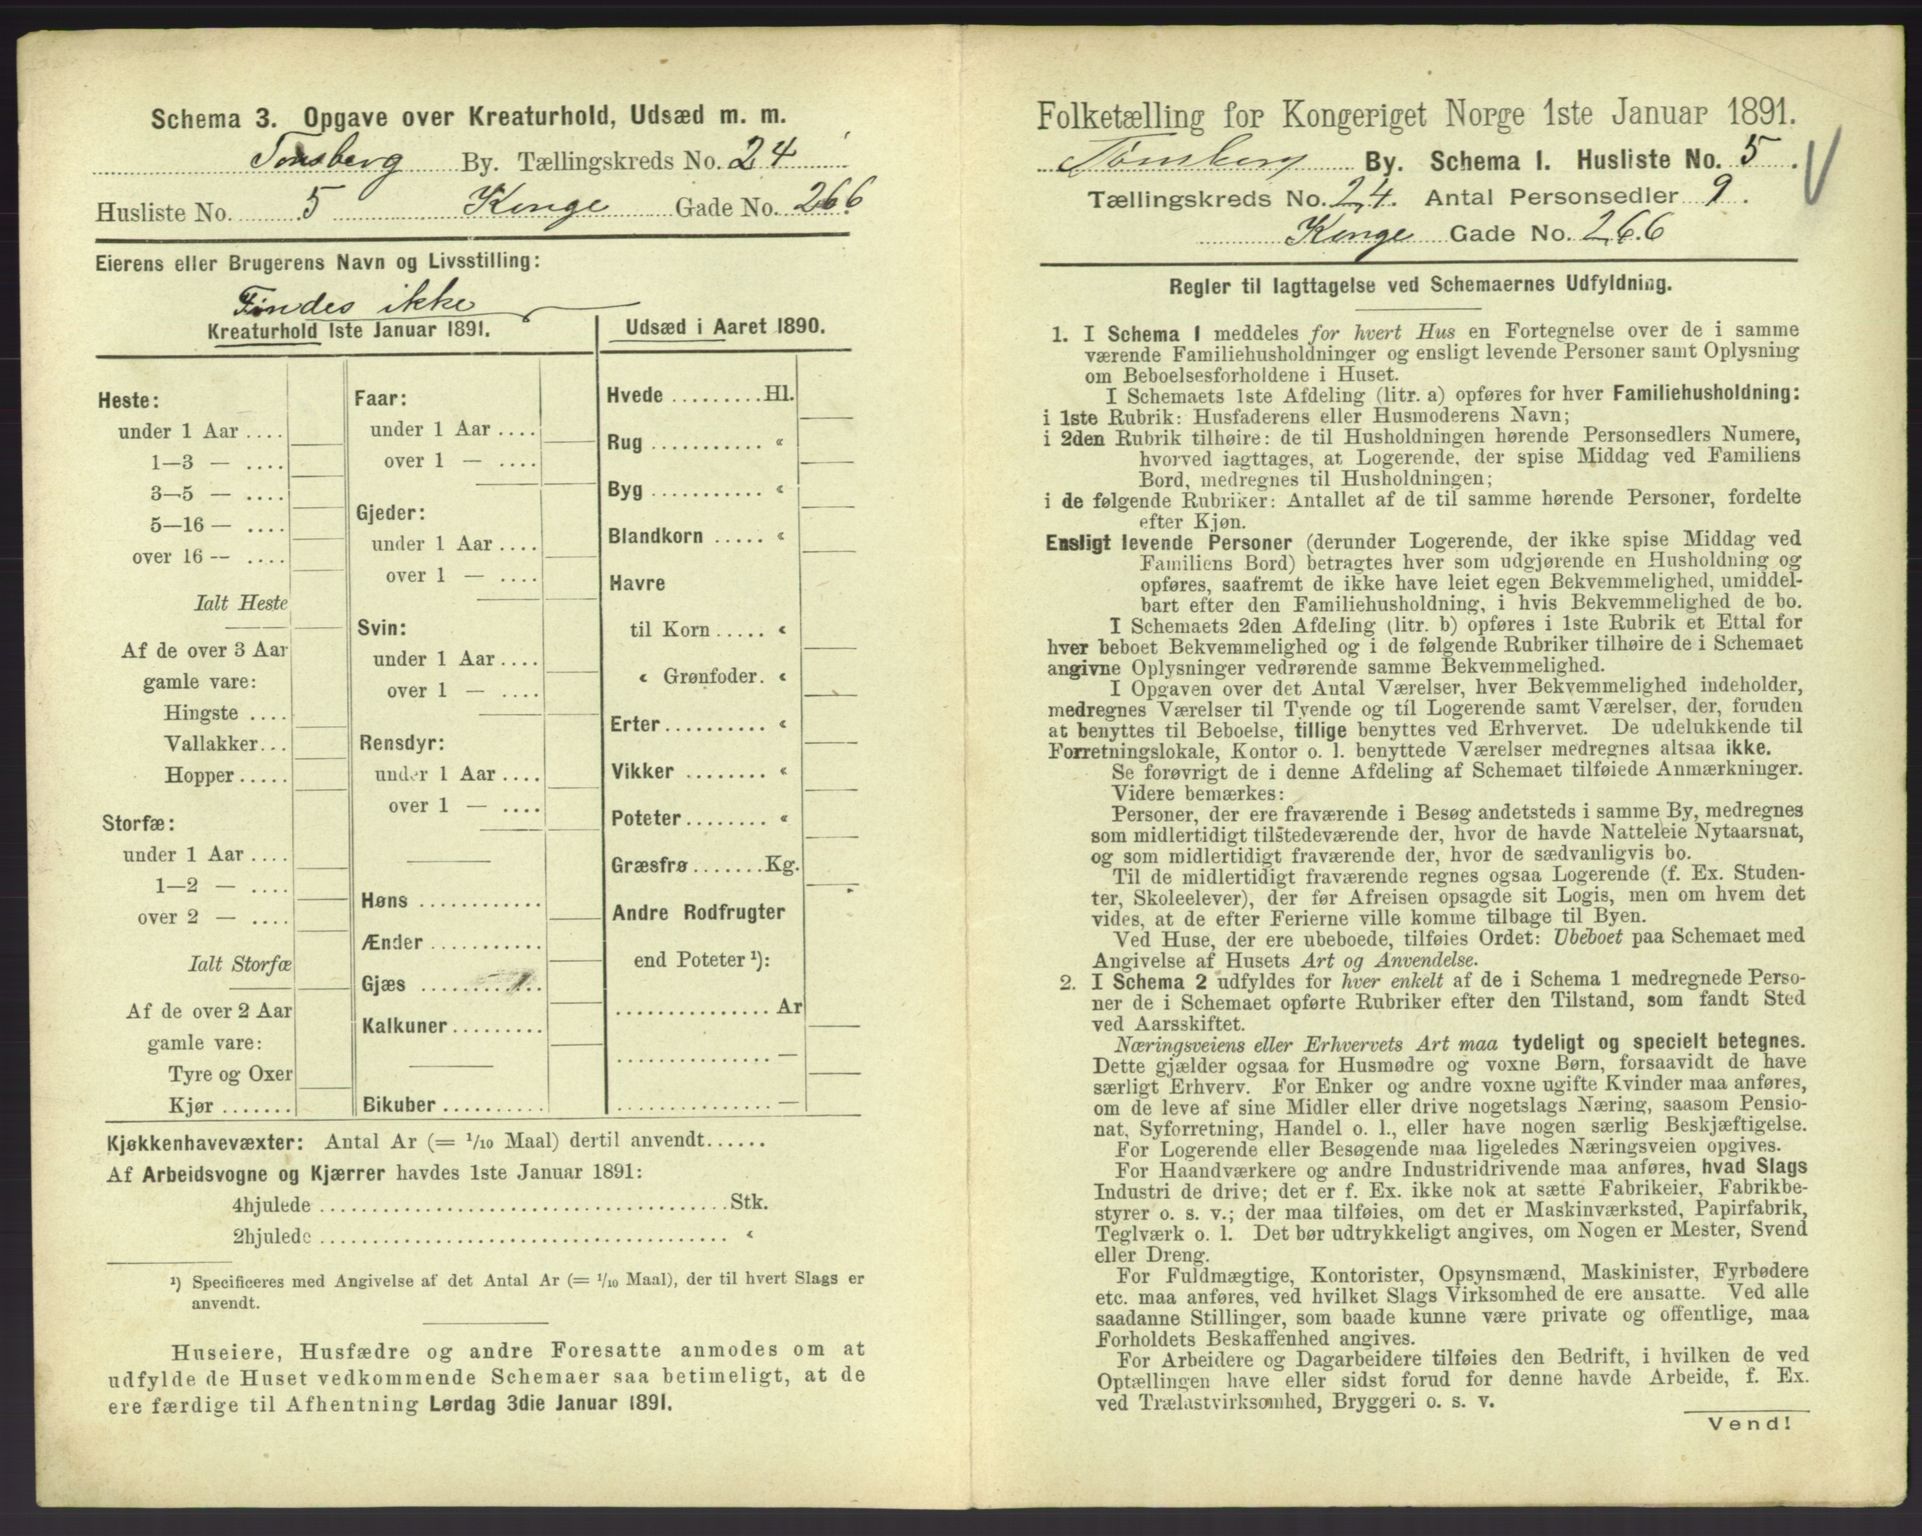 Schema 3. Opgave over Kreaturhold, Udsæd m. m.
Tønsberg By. Tællingskreds No. 24
Husliste No. 5 Konge Gade No. 266
Eierens eller Brugerens Navn og Livsstilling:
Findes ikke
Kreaturhold 1ste Januar 1891.
Heste:
under 1 Aar ....
1—3 — ....
3—5 — ....
5—16 — ....
over 16 — ....
Ialt Heste
Af de over 3 Aar
gamle vare:
Hingste ....
Vallakker...
Hopper.....
Storfæ:
under 1 Aar ....
1—2 — ....
over 2 — ....
Ialt Storfæ
Af de over 2 Aar
gamle vare:
Tyre og Oxer
Kjør .......
Faar:
under 1 Aar ....
over 1 — ....
Gjeder:
under 1 Aar ....
over 1 — ....
Svin:
under 1 Aar ....
over 1 — ....
Rensdyr:
under 1 Aar ....
over 1 — ....
Høns ............
Ænder ...........
Gjæs ............
Kalkuner.........
Bikuber ..........
Udsæd i Aaret 1890.
Hvede .........Hl.
Rug ........... «
Byg ........... «
Blandkorn ..... «
Havre
til Korn ..... «
« Grønfoder. «
Erter .......... «
Vikker ........ «
Poteter........ «
Græsfrø.......Kg.
Andre Rodfrugter
end Poteter ¹):
................ Ar
................ —
................ —
Kjøkkenhavevæxter: Antal Ar (= 1/10 Maal) dertil anvendt......
Af Arbeidsvogne og Kjærrer havdes 1ste Januar 1891:
4hjulede ......................................Stk.
2hjulede ...................................... «
¹) Specificeres med Angivelse af det Antal Ar (= 1/10 Maal), der til hvert Slags er
anvendt.
Huseiere, Husfædre og andre Foresatte anmodes om at
udfylde de Huset vedkommende Schemaer saa betimeligt, at de
ere færdige til Afhentning Lørdag 3die Januar 1891.
Folketælling for Kongeriget Norge 1ste Januar 1891.
Tønsberg By. Schema 1. Husliste No. 5.
Tællingskreds No. 24. Antal Personsedler 9.
Konge Gade No. 266
Regler til Iagttagelse ved Schemaernes Udfyldning.
1. I Schema 1 meddeles for hvert Hus en Fortegnelse over de i samme
værende Familiehusholdninger og ensligt levende Personer samt Oplysning
om Beboelsesforholdene i Huset.
I Schemaets 1ste Afdeling (litr. a) opføres for hver Familiehusholdning:
i 1ste Rubrik: Husfaderens eller Husmoderens Navn;
i 2den Rubrik tilhøire: de til Husholdningen hørende Personsedlers Numere,
hvorved iagttages, at Logerende, der spise Middag ved Familiens
Bord, medregnes til Husholdningen;
i de følgende Rubriker: Antallet af de til samme hørende Personer, fordelte
efter Kjøn.
Ensligt levende Personer (derunder Logerende, der ikke spise Middag ved
Familiens Bord) betragtes hver som udgjørende en Husholdning og
opføres, saafremt de ikke have leiet egen Bekvemmelighed, umiddel-
bart efter den Familiehusholdning, i hvis Bekvemmelighed de bo.
I Schemaets 2den Afdeling (litr. b) opføres i 1ste Rubrik et Ettal for
hver beboet Bekvemmelighed og i de følgende Rubriker tilhøire de i Schemaet
angivne Oplysninger vedrørende samme Bekvemmelighed.
I Opgaven over det Antal Værelser, hver Bekvemmelighed indeholder,
medregnes Værelser til Tyende og til Logerende samt Værelser, der, foruden
at benyttes til Beboelse, tillige benyttes ved Erhvervet. De udelukkende til
Forretningslokale, Kontor o. l. benyttede Værelser medregnes altsaa ikke.
Se forøvrigt de i denne Afdeling af Schemaet tilføiede Anmærkninger.
Videre bemærkes:
Personer, der ere fraværende i Besøg andetsteds i samme By, medregnes
som midlertidigt tilstedeværende der, hvor de havde Natteleie Nytaarsnat,
og som midlertidigt fraværende der, hvor de sædvanligvis bo.
Til de midlertidigt fraværende regnes ogsaa Logerende (f. Ex. Studen-
ter, Skoleelever), der før Afreisen opsagde sit Logis, men om hvem det
vides, at de efter Ferierne ville komme tilbage til Byen.
Ved Huse, der ere ubeboede, tilføies Ordet: Ubeboet paa Schemaet med
Angivelse af Husets Art og Anvendelse.
2. I Schema 2 udfyldes for hver enkelt af de i Schema 1 medregnede Perso-
ner de i Schemaet opførte Rubriker efter den Tilstand, som fandt Sted
ved Aarsskiftet.
Næringsveiens eller Erhvervets Art maa tydeligt og specielt betegnes.
Dette gjælder ogsaa for Husmødre og voxne Børn, forsaavidt de have
særligt Erhverv. For Enker og andre voxne ugifte Kvinder maa anføres,
om de leve af sine Midler eller drive nogetslags Næring, saasom Pensio-
nat, Syforretning, Handel o. l., eller have nogen særlig Beskjæftigelse.
For Logerende eller Besøgende maa ligeledes Næringsveien opgives.
For Haandværkere og andre Industridrivende maa anføres, hvad Slags
Industri de drive; det er f. Ex. ikke nok at sætte Fabrikeier, Fabrikbe-
styrer o. s. v.; der maa tilføies, om det er Maskinværksted, Papirfabrik,
Teglværk o. l. Det bør udtrykkeligt angives, om Nogen er Mester, Svend
eller Dreng.
For Fuldmægtige, Kontorister, Opsynsmænd, Maskinister, Fyrbødere
etc. maa anføres, ved hvilket Slags Virksomhed de ere ansatte. Ved alle
saadanne Stillinger, som baade kunne være private og offentlige, maa
Forholdets Beskaffenhed angives.
For Arbeidere og Dagarbeidere tilføies den Bedrift, i hvilken de ved
Optællingen have eller sidst forud for denne havde Arbeide, f. Ex.
ved Trælastvirksomhed, Bryggeri o. s. v.
Vend!